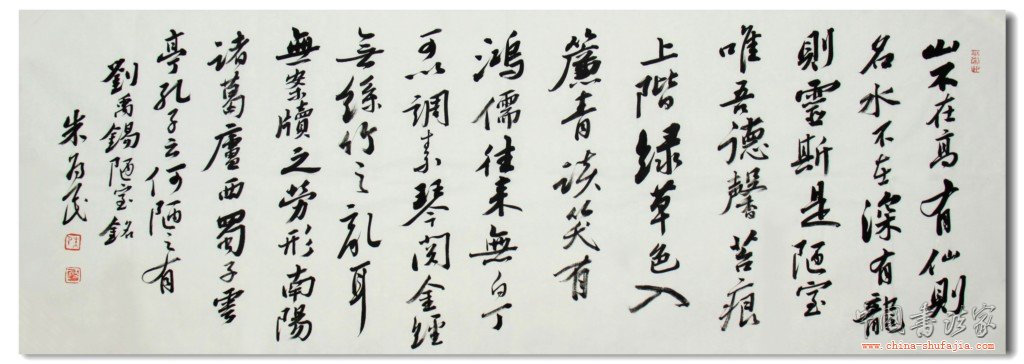 山不在高有仙則
名水不在深有龍
則靈斯是陋室
唯吾德馨苔痕
上階绿草色入
簾青談笑有
鴻儒往来無白丁
可以調素琴閱金經
無絲竹之亂耳
無案牘之勞形南陽
諸葛廬西蜀子雲
亭孔子云何陋之有
劉禹錫陋室銘
朱为民
中国书法家
www.china-shufajia.com